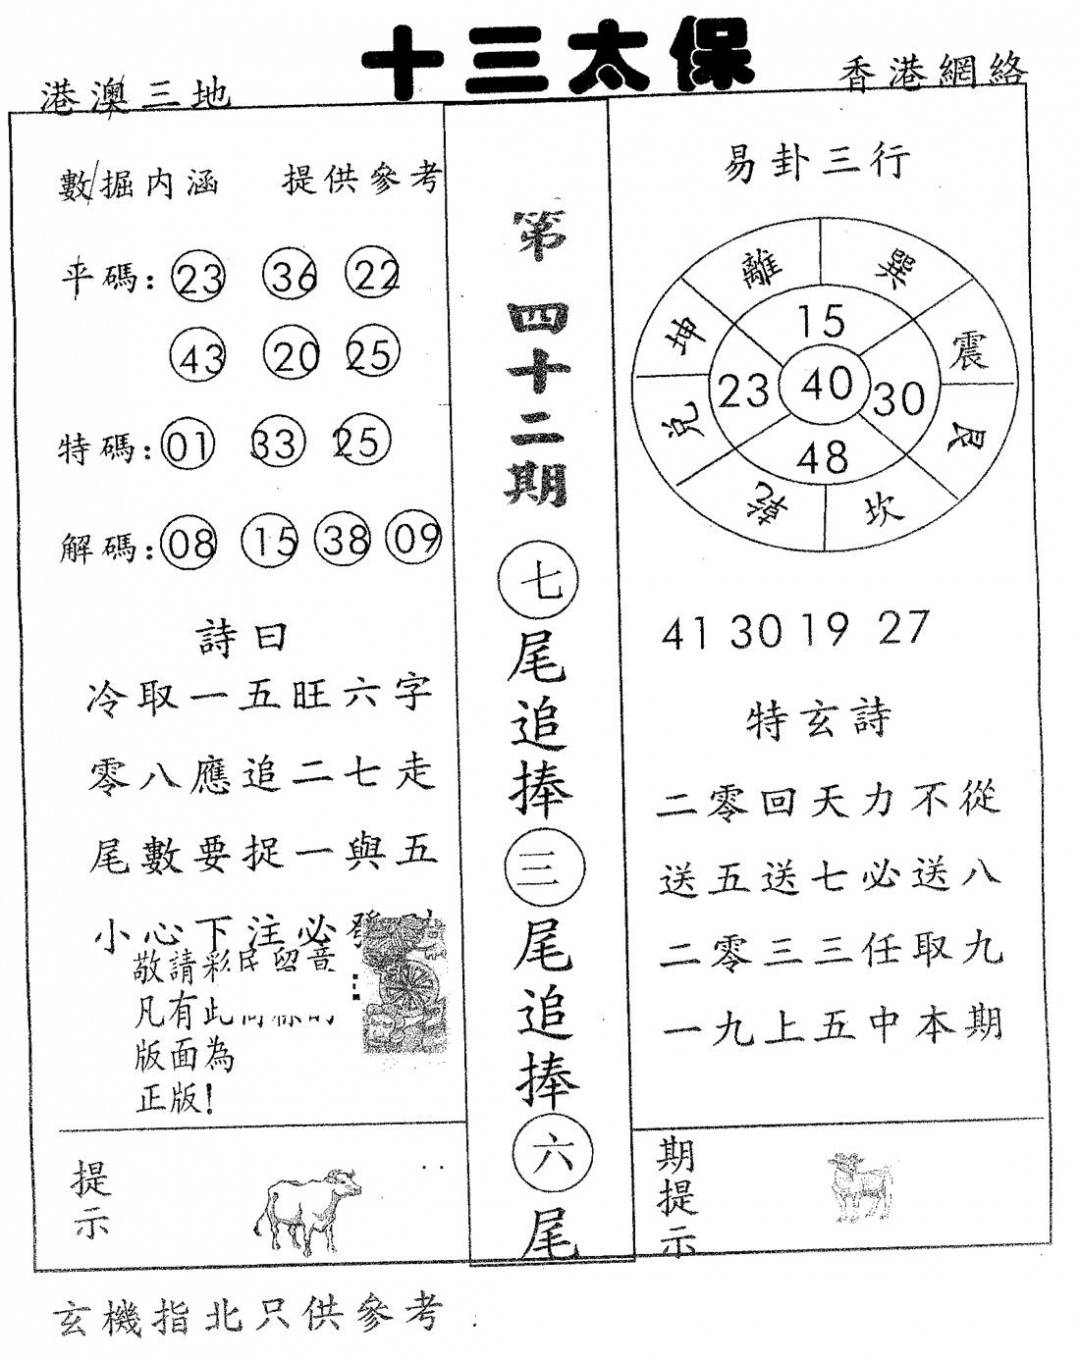 十三太保
港澳三地
香港網絡
數掘内涵 提供參考
平碼: 23 36 22
43 20 25
特碼: 01 33 25
解碼: 08 15 38 09
詩曰
冷取一五旺六字
零八應追二七走
尾數要捉一與五
小心下注必發
敬請彩民留意
凡有此
版面為
正版!
提示
第四十二期
七尾追捧三尾追捧六尾
易卦三行
離 巽
坤 震
兌 艮
乾 坎
15
23 40 30
48
41 30 19 27
特玄詩
二零回天力不從
送五送七必送八
二零三三任取九
一九上五中本期
期提示
玄機指北只供參考